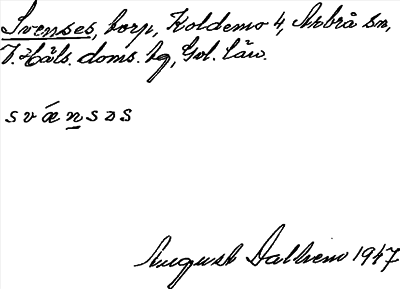 Svenses, torp, Koldemo 4, Arbrå sn,
V. Häls. doms. hg, Gvl. län.
svǽnsəs
August Dallhem 1947